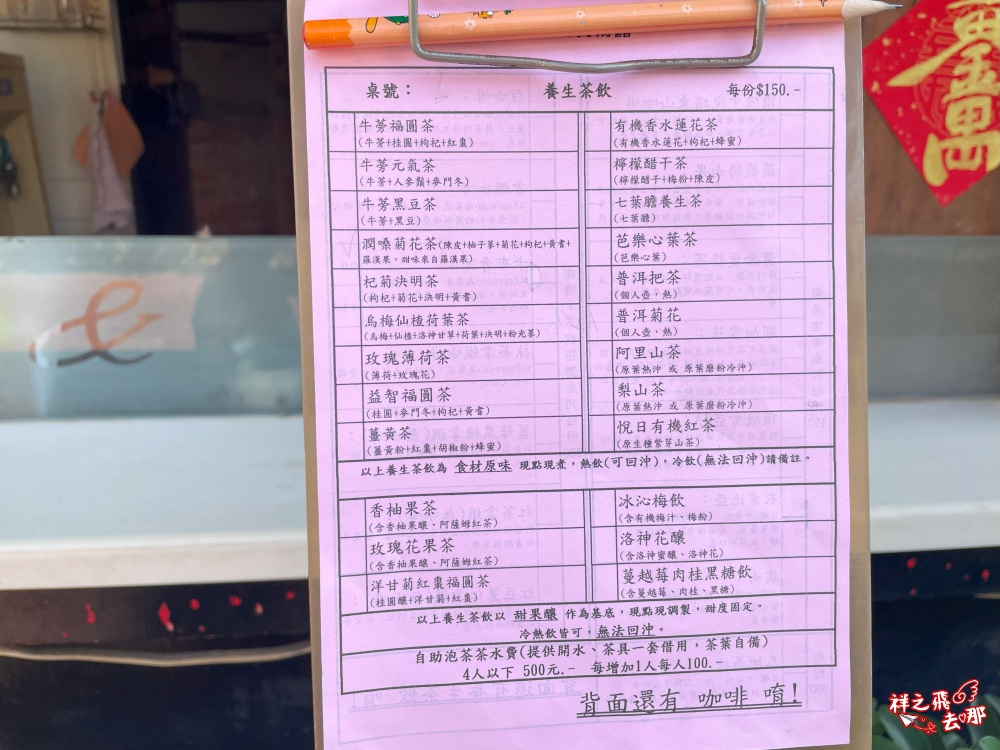 桌號：
養生茶飲
每份$150.-
牛蒡福圓茶
(牛蒡+桂圓+枸杞+紅棗)
牛蒡元氣茶
(牛蒡+人參鬚+參門冬)
牛蒡黑豆茶
(牛蒡+黑豆)
潤嗓菊花茶(陳皮+柚子蔘+菊花+枸杞+黃耆+
羅漢果，甜味來自羅漢果)
杞菊決明茶
(枸杞+菊花+決明+黃耆)
烏梅仙楂荷葉茶
(烏梅+仙楂+洛神甘草+荷葉+決明+粉光蔘)
玫瑰薄荷茶
(薄荷+玫瑰花)
益智福圓茶
(桂圓+參門冬+枸杞+黃耆)
薑黃茶
(薑黃粉+紅棗+胡椒粉+蜂蜜)
有機香水蓮花茶
(有機香水蓮花+枸杞+蜂蜜)
檸檬醋干茶
(檸檬醋干+梅粉+陳皮)
七葉膽養生茶
(七葉膽)
芭樂心葉茶
(芭樂心葉)
普洱把茶
(個人壺，熱)
普洱菊花
(個人壺，熱)
阿里山茶
(原葉熱沖 或 原葉磨粉冷沖)
梨山茶
(原葉熱沖 或 原葉磨粉冷沖)
悅日有機紅茶
(原生種常芽山茶)
以上養生茶飲為 食材原味 現點現煮，熱飲(可回沖)，冷飲(無法回沖)請備註。
香柚果茶
(含香柚果釀、阿薩姆紅茶)
玫瑰花果茶
(含香柚果釀、阿薩姆紅茶)
洋甘菊紅棗福圓茶
(桂圓釀+洋甘菊+紅棗)
冰沁梅飲
(含有機梅汁、梅粉)
洛神花釀
(含洛神蜜釀、洛神花)
蔓越莓肉桂黑糖飲
(含蔓越莓、肉桂、黑糖)
以上養生茶飲以 甜果釀 作為基底，現點現調製，甜度固定。
冷熱飲皆可，無法回沖。
自助泡茶茶水費(提供開水、茶具一套借用，茶葉自備)
4人以下 500元.- 每增加1人每人100.-
背面還有 咖啡 唷!
祥之飛
去哪